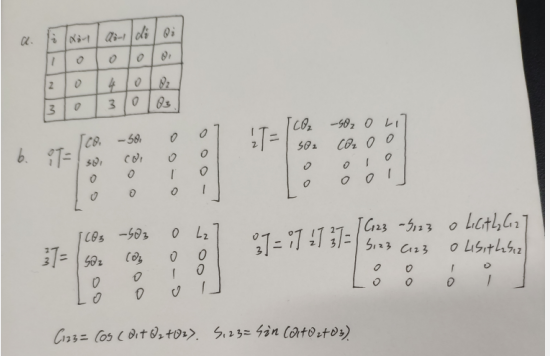 a.
i αi-1 ai-1 di θi
1 0 0 0 θ1
2 0 4 0 θ2
3 0 3 0 θ3
b. ⁰₁T = [cθ1 -sθ1 0 0
sθ1 cθ1 0 0
0 0 1 0
0 0 0 1]
¹₂T = [cθ2 -sθ2 0 L1
sθ2 cθ2 0 0
0 0 1 0
0 0 0 1]
²₃T = [cθ3 -sθ3 0 L2
sθ2 cθ3 0 0
0 0 1 0
0 0 0 1]
⁰₃T = ⁰₁T ¹₂T ²₃T = [C123 -S123 0 L1C1+L2C12
S123 C123 0 L1S1+L2S12
0 0 1 0
0 0 0 1]
C123 = cos(θ1+θ2+θ3). S123 = sin(θ1+θ2+θ3).